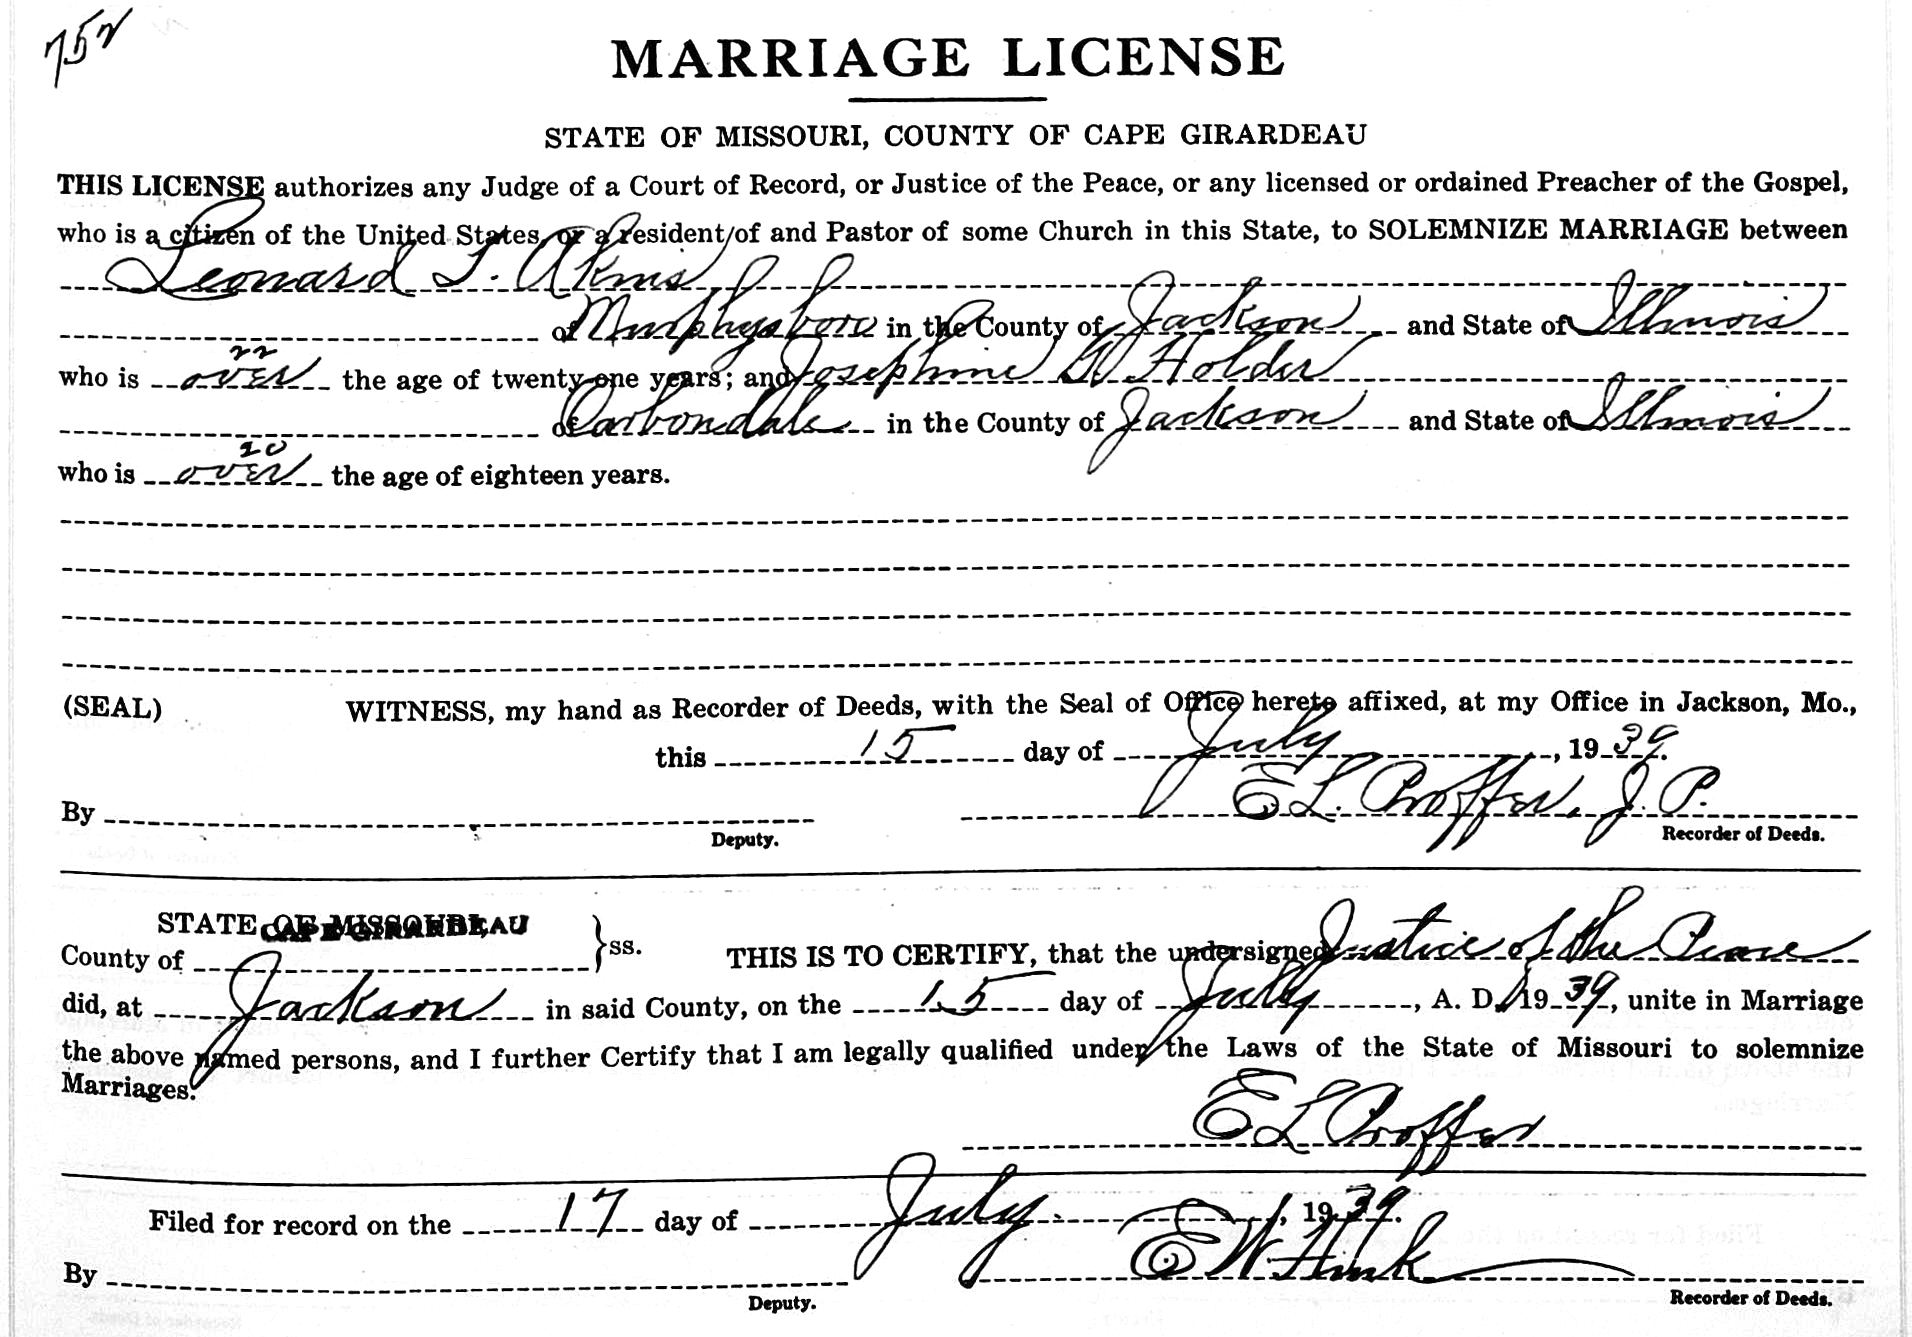 752
MARRIAGE LICENSE
STATE OF MISSOURI, COUNTY OF CAPE GIRARDEAU
THIS LICENSE authorizes any Judge of a Court of Record, or Justice of the Peace, or any licensed or ordained Preacher of the Gospel,
who is a citizen of the United States, or a resident of and Pastor of some Church in this State, to SOLEMNIZE MARRIAGE between
Leonard T. Akins
of Murphysboro in the County of Jackson and State of Illinois
22
who is over the age of twenty-one years; and Josephine W Holder
of Carbondale in the County of Jackson and State of Illinois
20
who is over the age of eighteen years.
(SEAL) WITNESS, my hand as Recorder of Deeds, with the Seal of Office hereto affixed, at my Office in Jackson, Mo.,
this 15 day of July, 1939.
By E L. Proffer, J. P.
Deputy. Recorder of Deeds.
STATE OF MISSOURI,
CAPE GIRARDEAU
County of } ss. THIS IS TO CERTIFY, that the undersigned Justice of the Peace
did, at Jackson in said County, on the 15 day of July, A. D. 1939, unite in Marriage
the above named persons, and I further Certify that I am legally qualified under the Laws of the State of Missouri to solemnize
Marriages.
E L Proffer
Filed for record on the 17 day of July, 1939.
By E W Hink
Deputy. Recorder of Deeds.